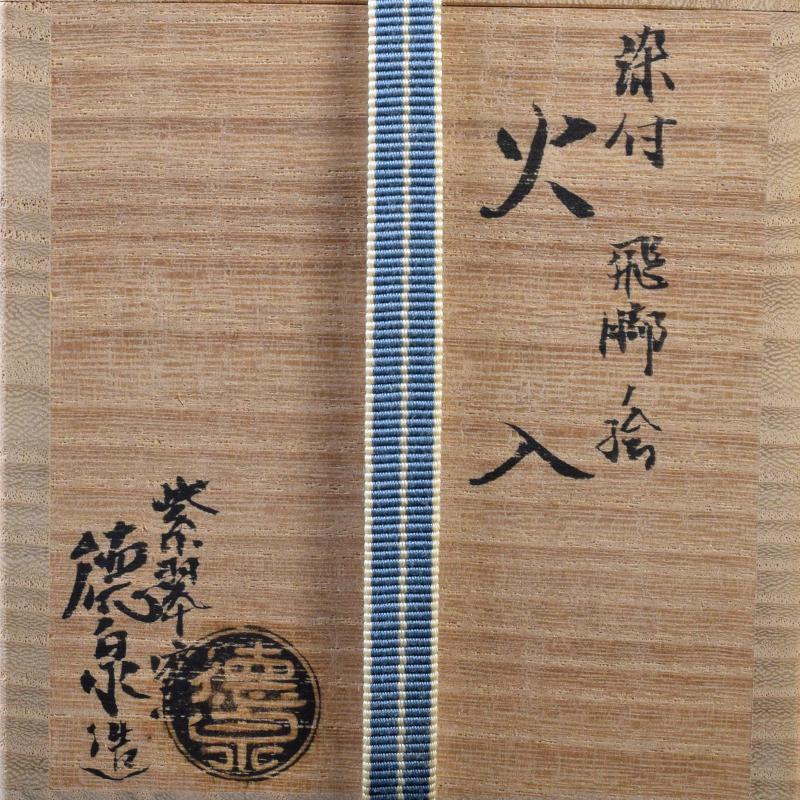 染付 飛脚絵
火入
紫翠窯
徳泉造
徳泉